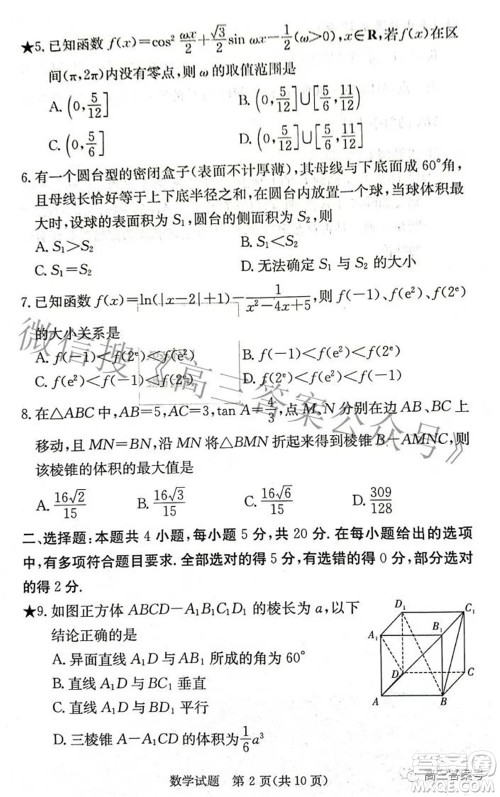 ★5. 已知函数 f(x)=cos²(ωx/2)+(√3/2)sin ωx−1/2(ω>0),x∈R,若f(x)在区
间(π,2π)内没有零点,则ω的取值范围是
A. (0,5/12]  B. (0,5/12]∪[5/6,11/12]
C. (0,5/6]  D. (0,5/12]∪[5/6,11/12]
6. 有一个圆台型的密闭盒子(表面不计厚薄),其母线与下底面成60°角,
且母线长恰好等于上下底半径之和,在圆台内放置一个球,当球体积最
大时,设球的表面积为S₁,圆台的侧面积为S₂,则
A. S₁>S₂  B. S₁<S₂
C. S₁=S₂  D. 无法确定S₁与S₂的大小
7. 已知函数 f(x)=ln(|x−2|+1)−1/(x²−4x+5),则f(e)、f(e²)、f(2ᵉ)
的大小关系是
A. f(e)<f(2ᵉ)<f(e²)  B. f(e)<f(e²)<f(2ᵉ)
C. f(2ᵉ)<f(e)<f(e²)  D. f(e²)<f(e)<f(2ᵉ)
8. 在△ABC中,AB=5,AC=3,tan A=4/3,点M、N分别在边AB、BC上
移动,且MN=BN,沿MN将△BMN折起来得到棱锥B−AMNC,则
该棱锥的体积的最大值是
A. 16√2/15  B. 16√3/15  C. 16√6/15  D. 309/128
二、选择题:本题共4小题,每小题5分,共20分.在每小题给出的选项
中,有多项符合题目要求.全部选对的得5分,有选错的得0分,部分选
对的得2分.
★9. 如图正方体ABCD−A₁B₁C₁D₁的棱长为a,以下
结论正确的是
A. 异面直线A₁D与AB₁所成的角为60°
B. 直线A₁D与BC₁垂直
C. 直线A₁D与BD₁平行
D. 三棱锥A−A₁CD的体积为1/6a³
D₁ C₁
A₁ B₁
D C
A B
数学试题 第2页(共10页)
微信搜《高三答案公众号》
高三答案号